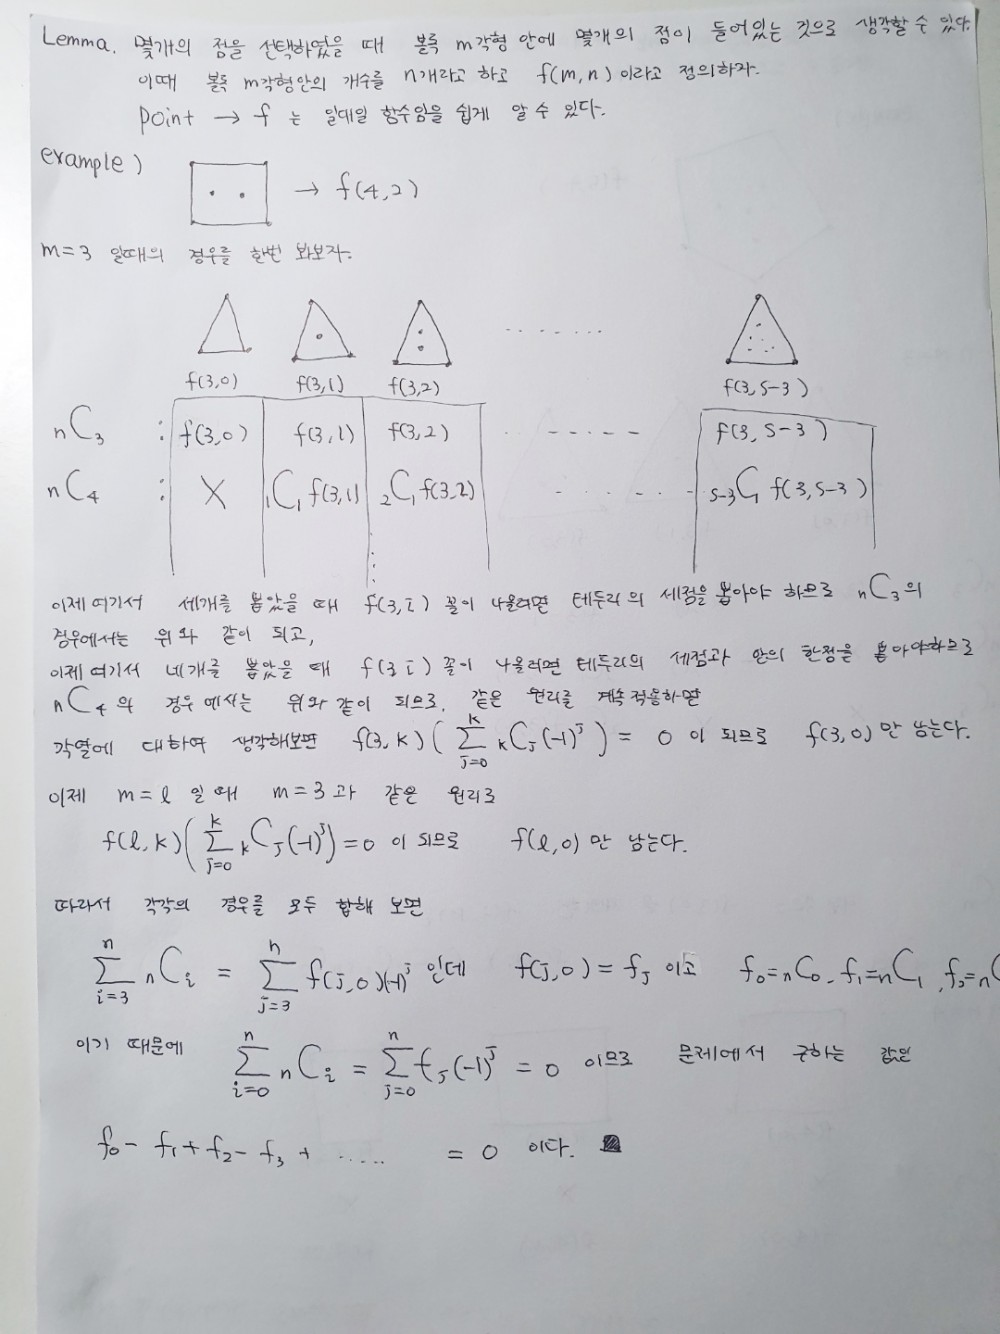 Lemma. 몇개의 점을 선택하였을 때 볼록 m각형 안에 몇개의 점이 들어있는 것으로 생각할 수 있다.
이때 볼록 m각형안의 개수를 n개라고 하고 f(m,n)이라고 정의하자.
point → f 는 일대일 함수임을 쉽게 알 수 있다.
example)
→ f(4,2)
m=3 일때의 경우를 한번 봐보자.
.........
f(3,0) f(3,1) f(3,2) f(3,s-3)
nC3 : f(3,0) f(3,1) f(3,2) ------ f(3,s-3)
nC4 : X 1C1 f(3,1) 2C1 f(3,2) ------ s-3C1 f(3,s-3)
이제 여기서 세개를 뽑았을 때 f(3,i) 꼴이 나올려면 테두리의 세점을 뽑아야 하므로 nC3의
경우에서는 위와 같이 되고,
이제 여기서 네개를 뽑았을 때 f(3,i) 꼴이 나올려면 테두리의 세점과 안의 한점을 뽑아야하므로
nC4의 경우에서는 위와 같이 되므로, 같은 원리로 계속 적용하면
각열에 대하여 생각해보면 f(3,k)(∑_{j=0}^{k} kCj(-1)^j) = 0 이 되므로 f(3,0)만 남는다.
이제 m=l 일 때 m=3과 같은 원리로
f(l,k)(∑_{j=0}^{k} kCj(-1)^j)=0 이 되므로 f(l,0)만 남는다.
따라서 각각의 경우를 모두 합해 보면
∑_{i=3}^{n} nCi = ∑_{j=3}^{n} f(j,0)(-1)^j 인데 f(j,0)=fj 이고 f0=nC0, f1=nC1, f2=nC
이기 때문에 ∑_{i=0}^{n} nCi = ∑_{j=0}^{n} fj(-1)^j = 0 이므로 문제에서 구하는 값인
f0 - f1 + f2 - f3 + ..... = 0 이다.